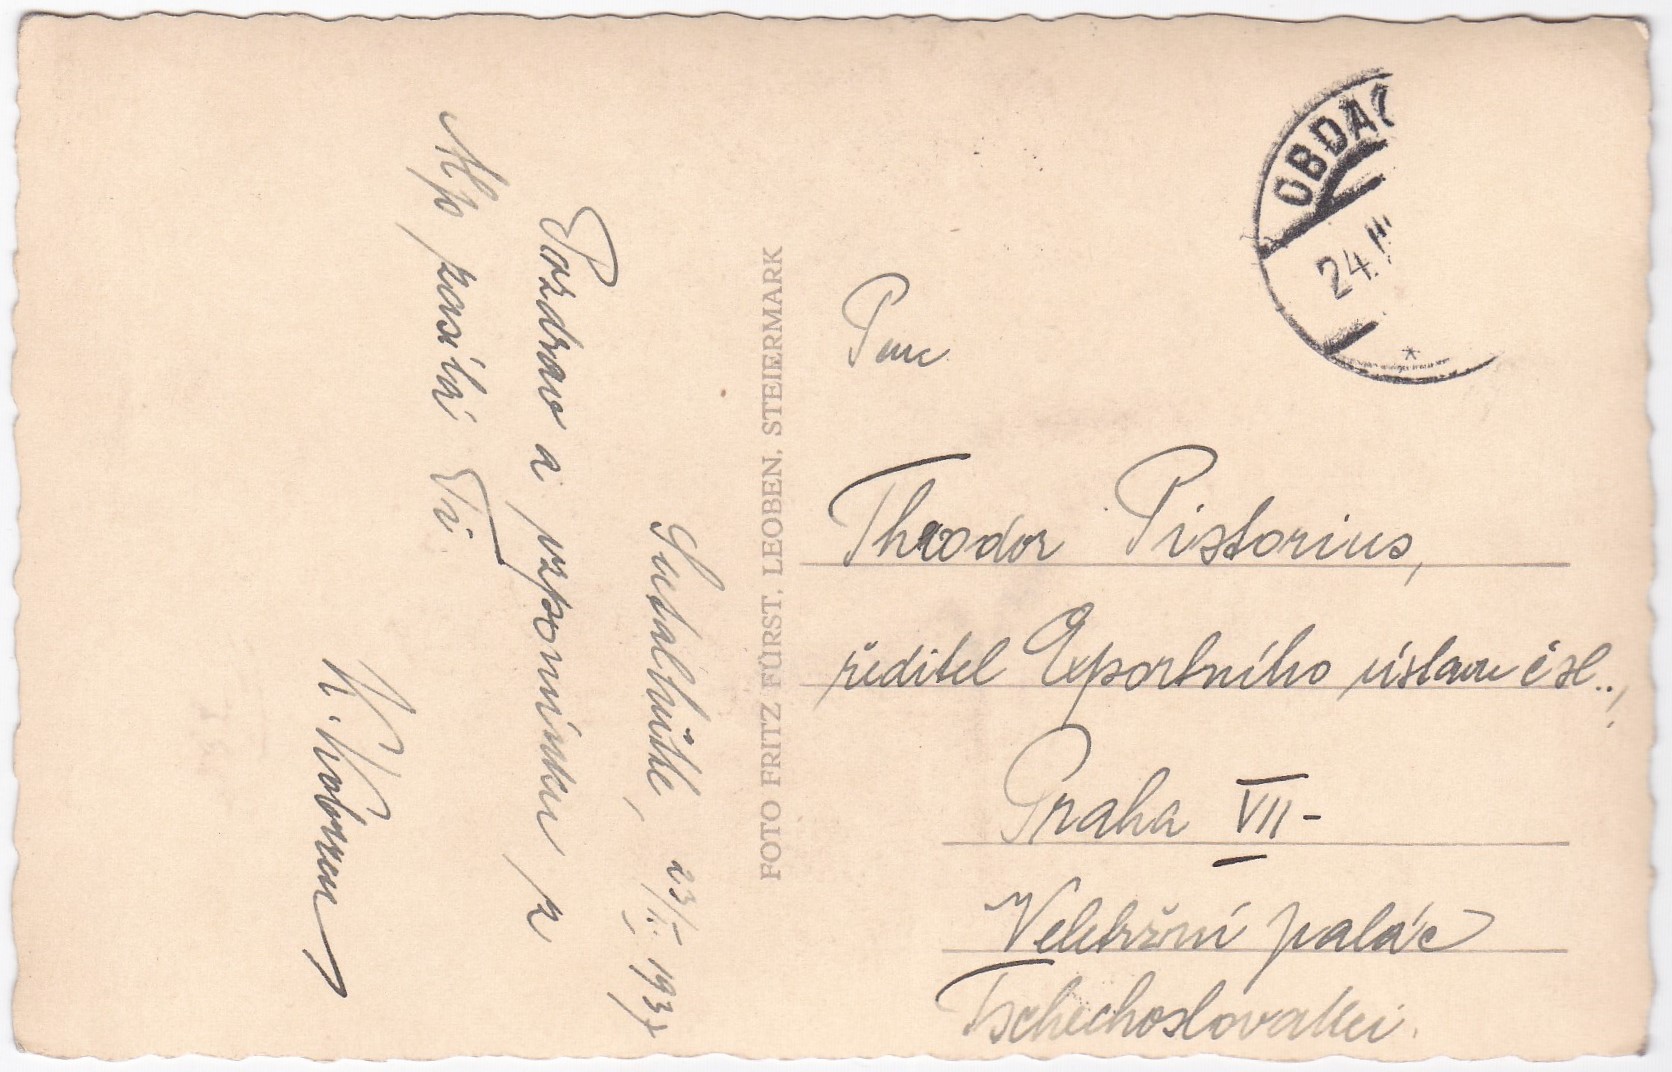 Sabathütte, 23/II. 1937
Pozdrav a vzpomínku z
Alp posílá Ti
FOTO FRITZ FÜRST, LEOBEN, STEIERMARK
OBDAC
24.II
Pan
Theodor Pistorius,
ředitel Exportního ústavu čsl.,
Praha VII-
Veletržní palác
Tschechoslovakei.